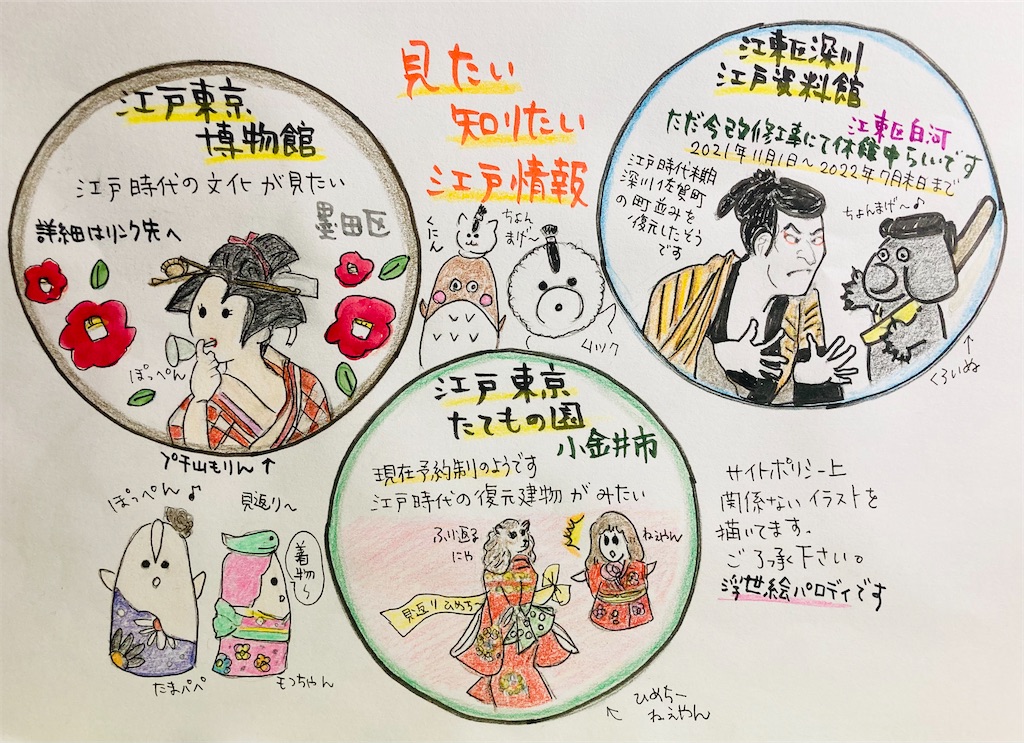 見たい
知りたい
江戸情報
江戸東京
博物館
江戸時代の文化が見たい
墨田区
詳細はリンク先へ
ぽっぺん
プチ山もりん↑
くにん
ちょん
まげ〜
ムック
江東区深川
江戸資料館
江東区白河
ただ今改修工事にて休館中らしいです
2021年11月1日〜2022年7月末日まで
江戸時代末期
深川佐賀町
の町並みを
復元したそう
です
ちょんまげ〜♪
↑
くろいぬ
江戸東京
たてもの園
小金井市
現在予約制のようです
江戸時代の復元建物がみたい
ふり返る
にゃ
ねぇやん
見返りひめちー
ひめちー
ねぇやん
ぽっぺん♪
見返り〜
着物で〜
たまぺぺ
もっちゃん
サイトポリシー上
関係ないイラストを
描いてます。
ご了承下さい。
浮世絵パロディです